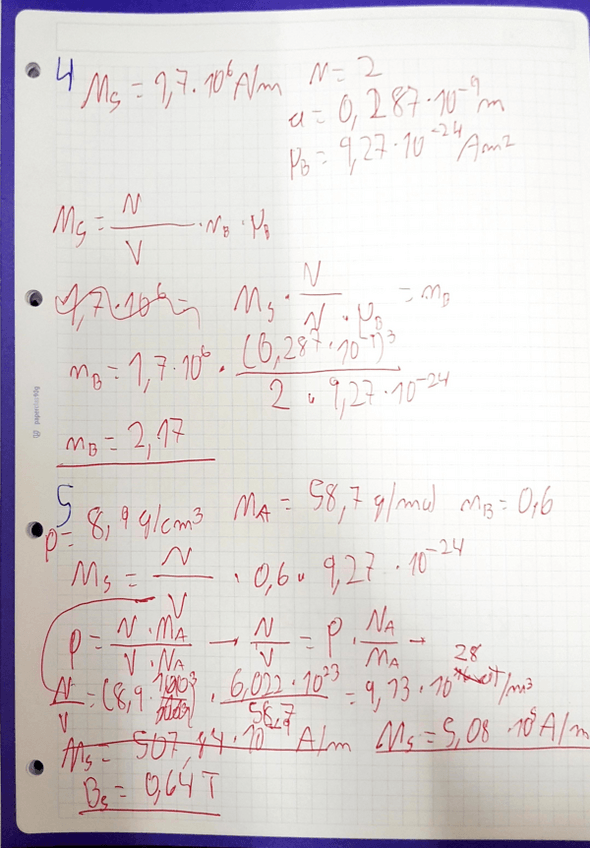 4 Ms = 1,7·10⁶ A/m N = 2
a = 0,287·10⁻⁹ m
μB = 9,27·10⁻²⁴ Am²
Ms = N/V · nB · μB
1,7·10⁶ = Ms · V/(N · μB) = nB
nB = 1,7·10⁶ · (0,287·10⁻⁹)³/(2 · 9,27·10⁻²⁴)
nB = 2,17
5 ρ = 8,9 g/cm³ MA = 58,7 g/mol nB = 0,6
Ms = N/V · 0,6 · 9,27·10⁻²⁴
ρ = N · MA/(V · NA) → N/V = ρ · NA/MA →
N/V = (8,9 · 100³) · 6,022·10²³/58,7 = 9,13·10²⁸ /m³
Ms = 507,84·10 A/m Ms = 5,08·10⁵ A/m
Bs = 0,64 T